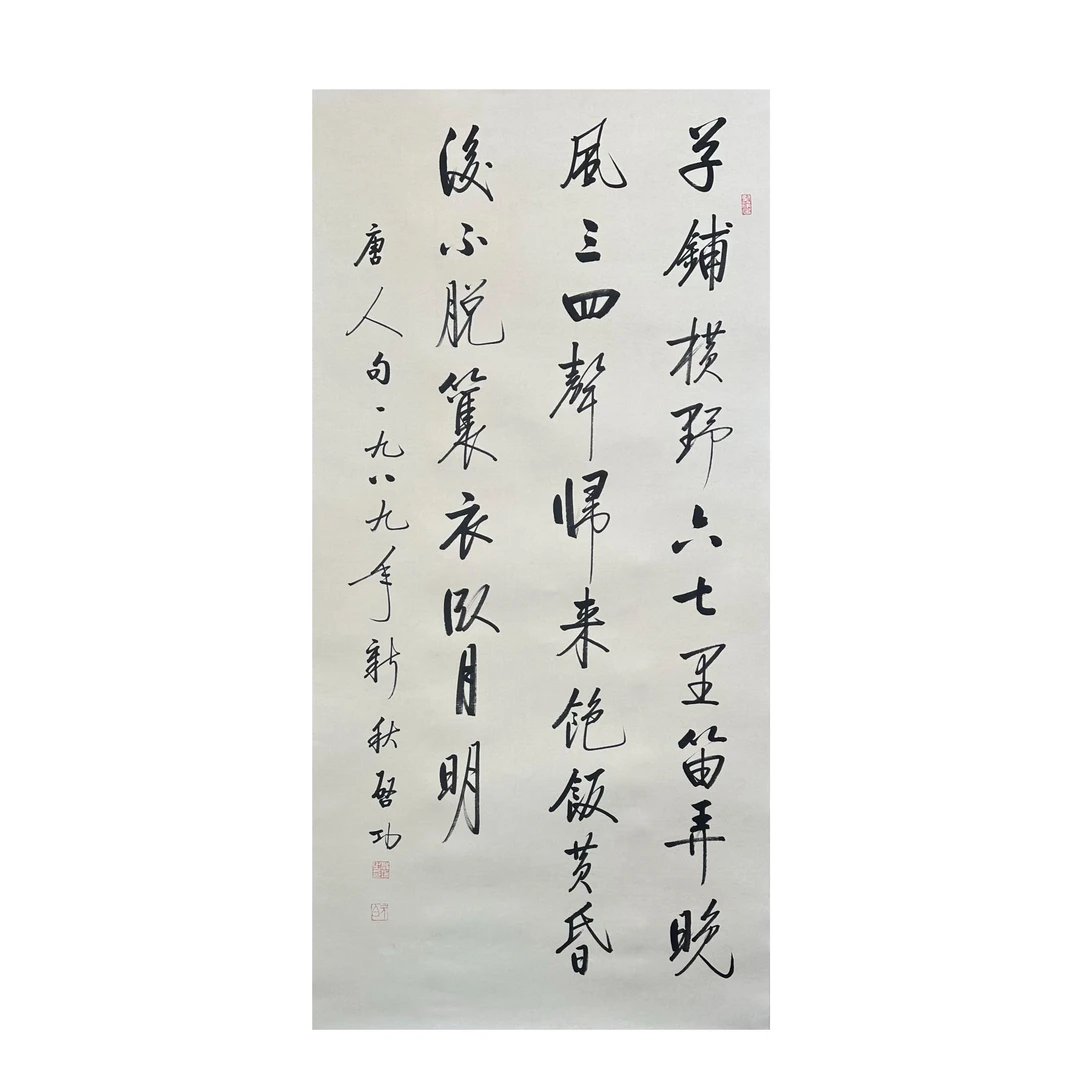 草鋪横野六七里笛弄晚
風三四聲歸来飽飯黄昏
後不脱簑衣卧月明
唐人句一九八九年新秋啓功